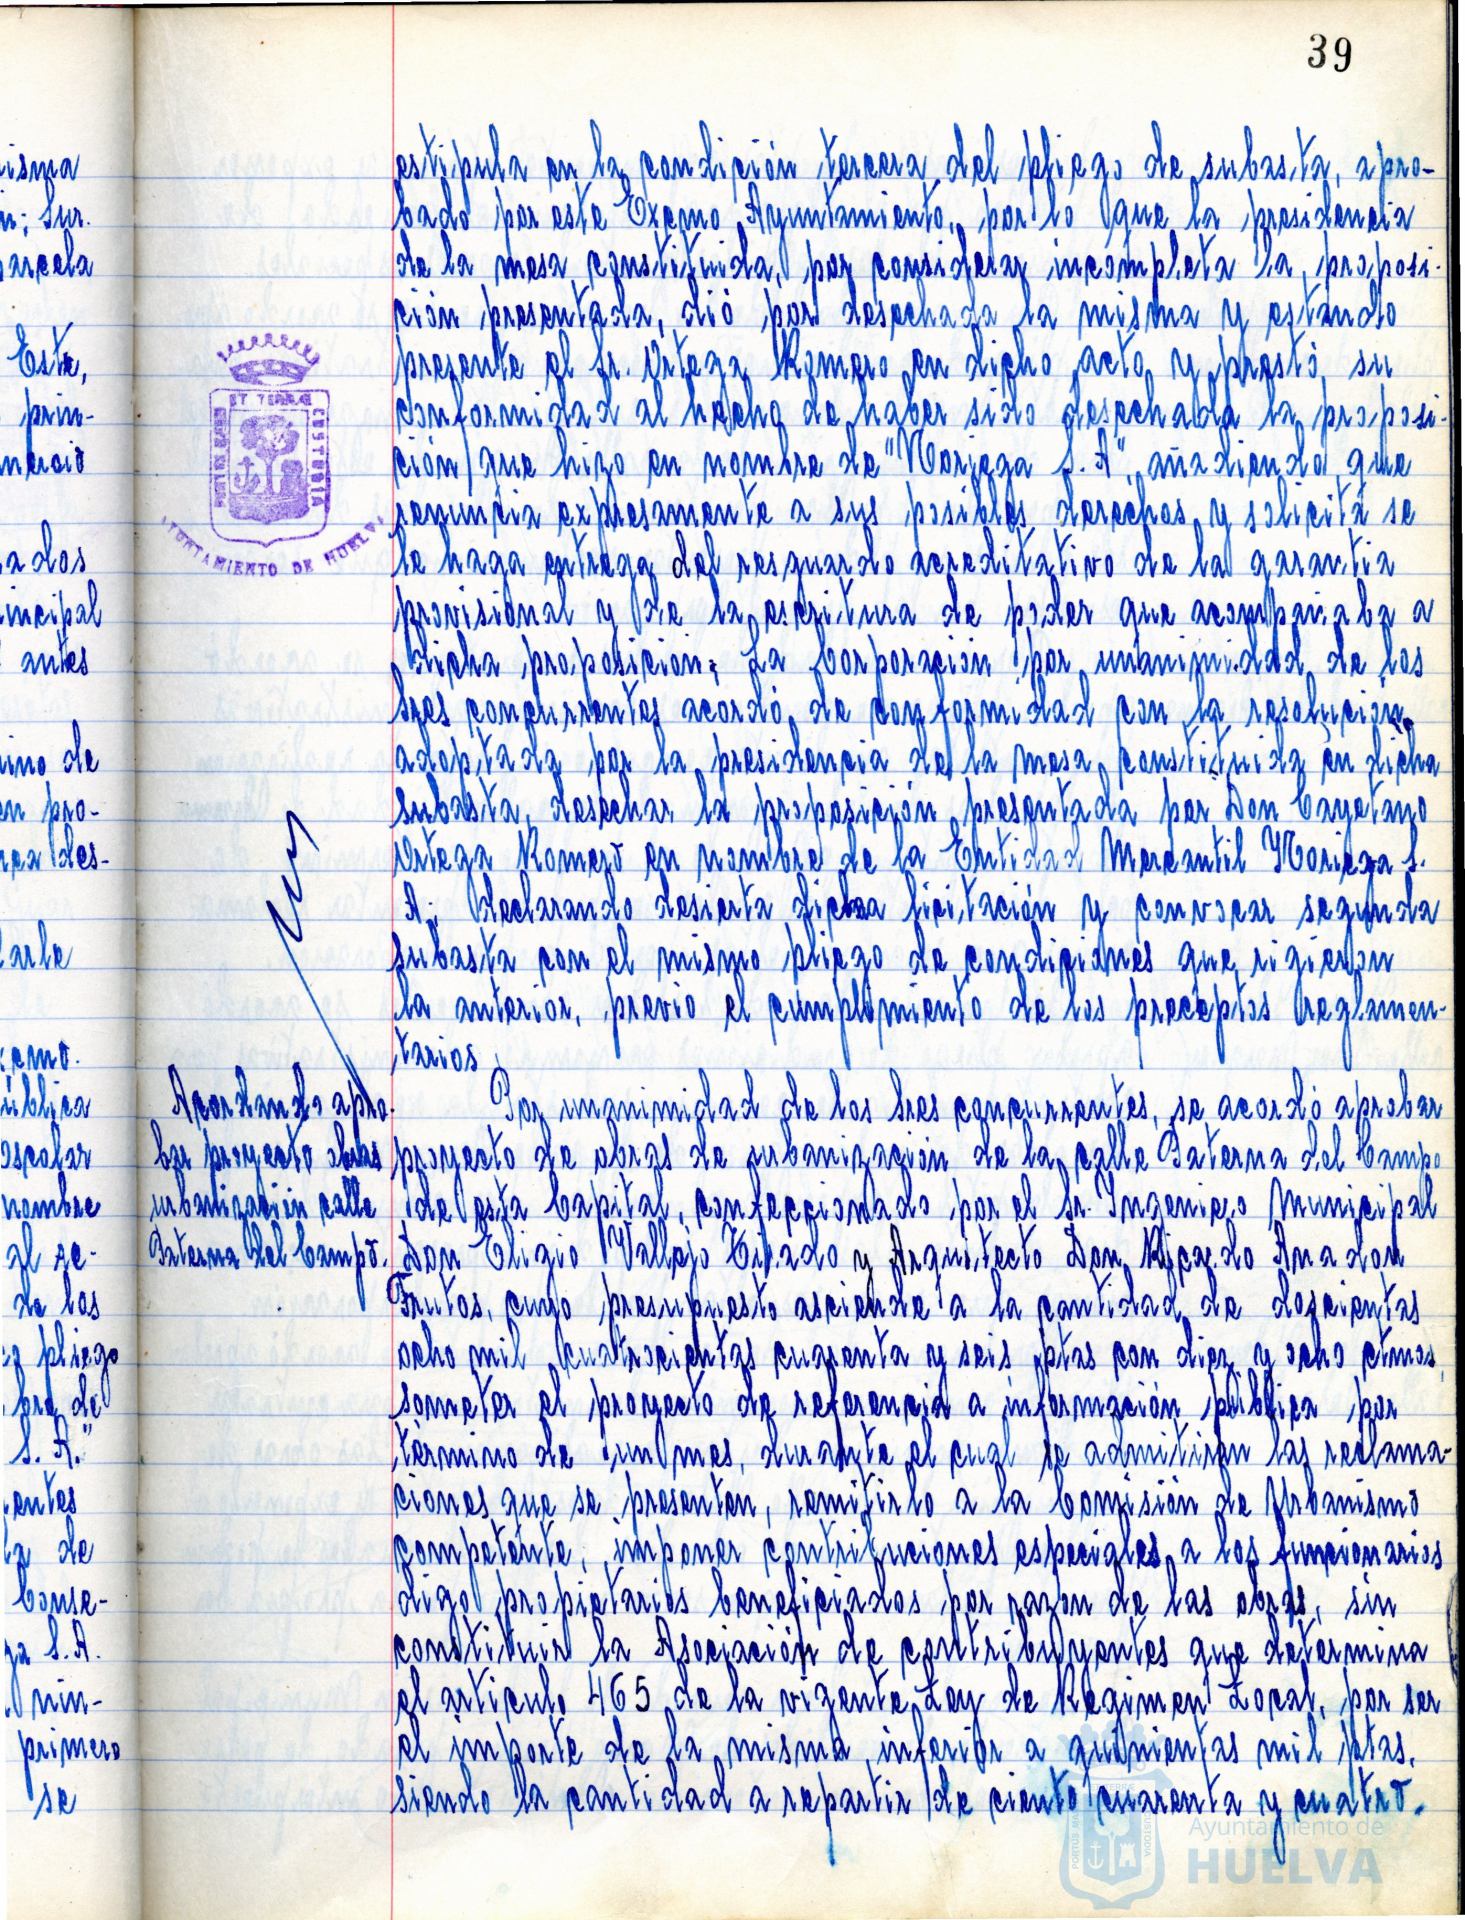 39
isma
n; Sur.
arcela
Este,
prin-
mercio
a dos
incipal
antes
ino de
en pro-
nea des-
arle
xcmo.
ública
escolar
nombre
al se-
de los
pliego
bra de
S. A."
entes
la de
Conse-
ga S.A.
nin-
primero
se
ET TERRAE CUSTODIA
AYUNTAMIENTO DE HUELVA
Acordando apro-
bar proyecto obras
urbanización calle
Paterna del Campo.
estipula en la condición tercera del pliego de subasta, apro-
bado por este Excmo Ayuntamiento, por lo que la presidencia
de la mesa constituida, por considerar incompleta la proposi-
ción presentada, dió por desechada la misma y estando
presente el Sr. Ortega Romero en dicho acto y prestó su
conformidad al hecho de haber sido desechada la proposi-
ción que hizo en nombre de "Noriega S. A", añadiendo que
renuncia expresamente a sus posibles derechos y solicita se
le haga entrega del resguardo acreditativo de la garantia
provisional y de la escritura de poder que acompañaba a
dicha proposición; La Corporación por unanimidad de los
Sres concurrentes acordó, de conformidad con la resolución
adoptada por la presidencia de la mesa constituida en dicha
subasta, desechar la proposición presentada por Don Cayetano
Ortega Romero en nombre de la Entidad Mercantil Noriega S.
A., declarando desierta dicha licitación y convocar segunda
subasta con el mismo pliego de condiciones que rigieron
la anterior, previo el cumplimiento de los preceptos reglamen-
tarios
Por unanimidad de los Sres concurrentes, se acordó aprobar
proyecto de obras de urbanización de la calle Paterna del Campo
de esta Capital, confeccionado por el Sr. Ingeniero Municipal
Don Eligio Vallejo Tirado y Arquitecto Don Ricardo Anadon
Frutos, cuyo presupuesto asciende a la cantidad de doscientas
ocho mil cuatrocientas cuarenta y seis ptas con diez y ocho ctmos,
someter el proyecto de referencia a información pública por
término de un mes, durante el cual se admitirán las reclama-
ciones que se presenten, remitirlo a la Comisión de Urbanismo
competente; imponer contribuciones especiales a los funcionarios
digo propietarios beneficiados por razon de las obras, sin
constituir la Asociación de contribuyentes que determina
el articulo 465 de la vigente Ley de Regimen Local, por ser
el importe de la misma inferior a quinientas mil ptas.
siendo la cantidad a repartir de ciento cuarenta y cuatro.
Ayuntamiento de
HUELVA